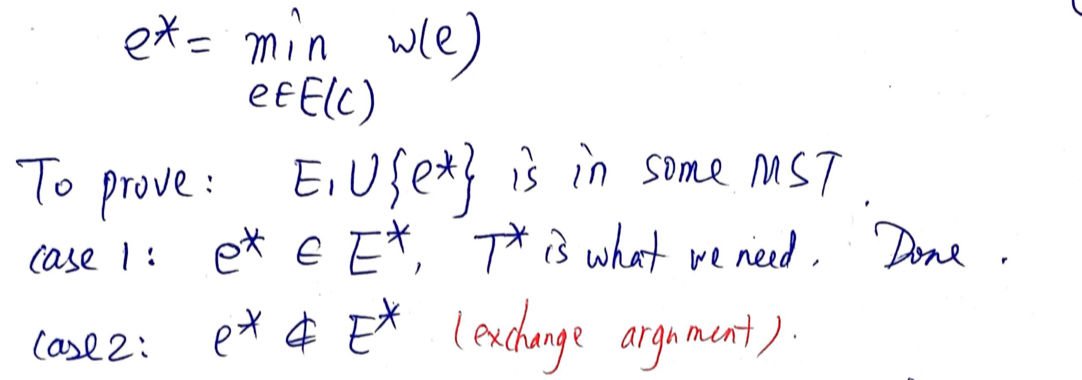 e* = min w(e)
e∈E(C)
To prove: E₁∪{e*} is in some MST.
case 1: e* ∈ E*, T* is what we need. Done.
case 2: e* ∉ E* (exchange argument).